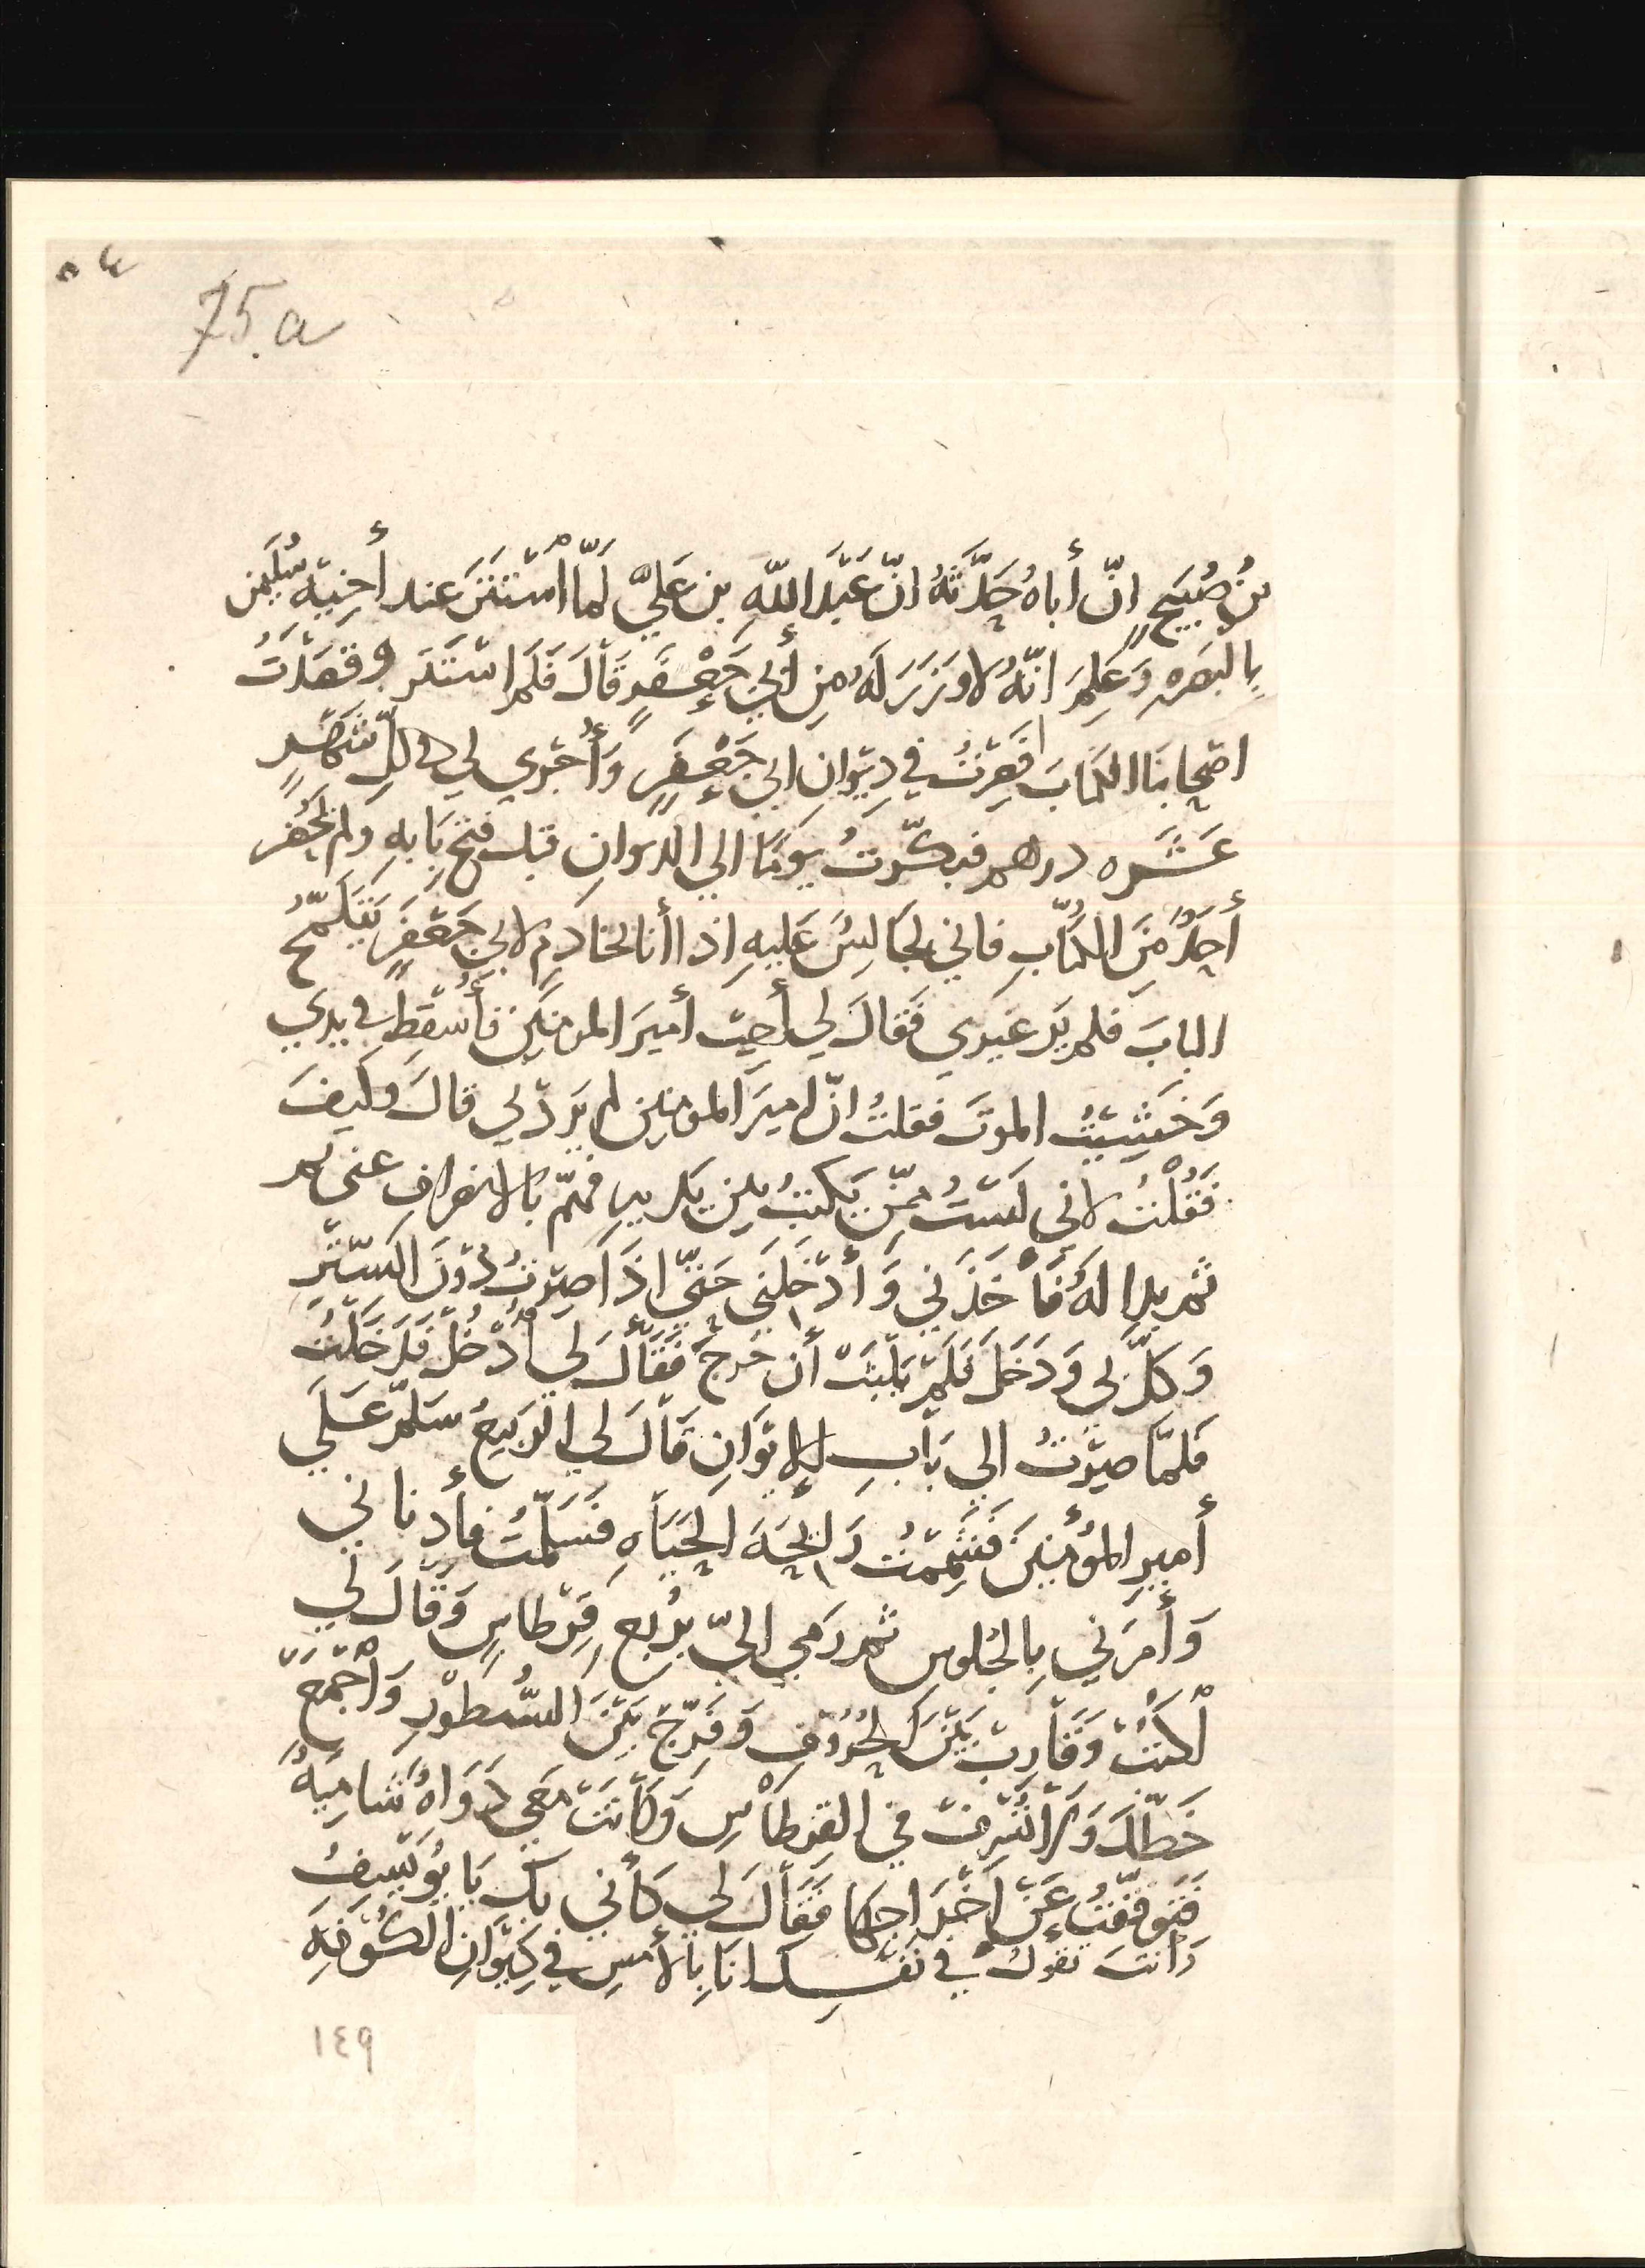 ٥٤
75.a
بنُ صُبَيحٍ إنّ أباهُ حَدَّثَهُ انّ عَبْدَ اللّهِ بن عَليّ لَمّا اسْتَتَرَ عند أخِيهِ سُلَيمن
بِالبَصرهِ وَعَلِمَ انّهُ لا وَزَرَ لَهُ مِن أبي جَعْفَرٍ قَالَ فَلَم استَتَر وقَصَدْتُ
اصْحابنَا الكتابَ فَصِرْتُ في دِيْوانِ ابي جَعْفَرٍ وَأُجْرِي لي كُلّ شَهْرٍ
عَشَره دراهم فبكّرتُ يَوماً الي الديوانِ قبل فتح بَابهِ ولم يحضر
أحَدٌ مِنَ الكُتّابِ فاني لجالِسٌ عَلَيهِ اذا أنا بخادِمٍ لابي جَعْفَرٍ يتَلَمّحُ
البابَ فلم يَر غيري فَقَالَ لي أجِبْ أميرَ المومنين فأُسْقِطَ في يدي
وَخَشِيْتُ الموتَ فقلتُ انّ اميرَ المومنين لم يَردني قالَ وكيفَ
فَقُلْتُ لاني لَسْتُ مِمّن يَكتبُ بين يديه فهمّ بالانصرافِ عنى
ثم بدا لَهُ فَأخَذَني وَأدْخَلَني حَتّى اذَا صِرْتُ دُوْنَ السِّتْرِ
وَكّلَ بي وَدَخَلَ فَلَمْ يَلْبَثْ أن خَرجَ فَقَالَ لي أُدْخُلْ فَدَخَلْتُ
فَلمّا صِرْتُ الي بَابِ الايْوَانِ قَالَ لي الرَبيعُ سَلّمْ عَلَي
أميرِ المؤمنينَ فَشَمِمْتُ رَائِحَةَ الحَيَاهِ فَسَلّمتُ فأدناني
وَأمَرَني بِالجُلوسِ ثم رَمي اليّ بِرُبعِ قِرْطاسٍ وَقَالَ لي
اكتُبْ وَقَارِبْ بَيْنَ الحُرُوْفِ وَفَرّجْ بَيْنَ السُّطوْرِ وَاجْمَعْ
خَطّكَ وَلا تُسْرِفْ في القِرْطَاسِ وَكَانَتْ مَعي دَوَاهٌ شَامِيَّهٌ
فَتَوَقّفتُ عَنْ اخْرَاجِهَا فَقَالَ لي كَأني بكَ يَا يُوْسِفُ
وأنتَ تقولُ في نَفْسِكَ انَا بِالأمسِ في دِيْوَانِ الكُوْفَهِ
١٤٩